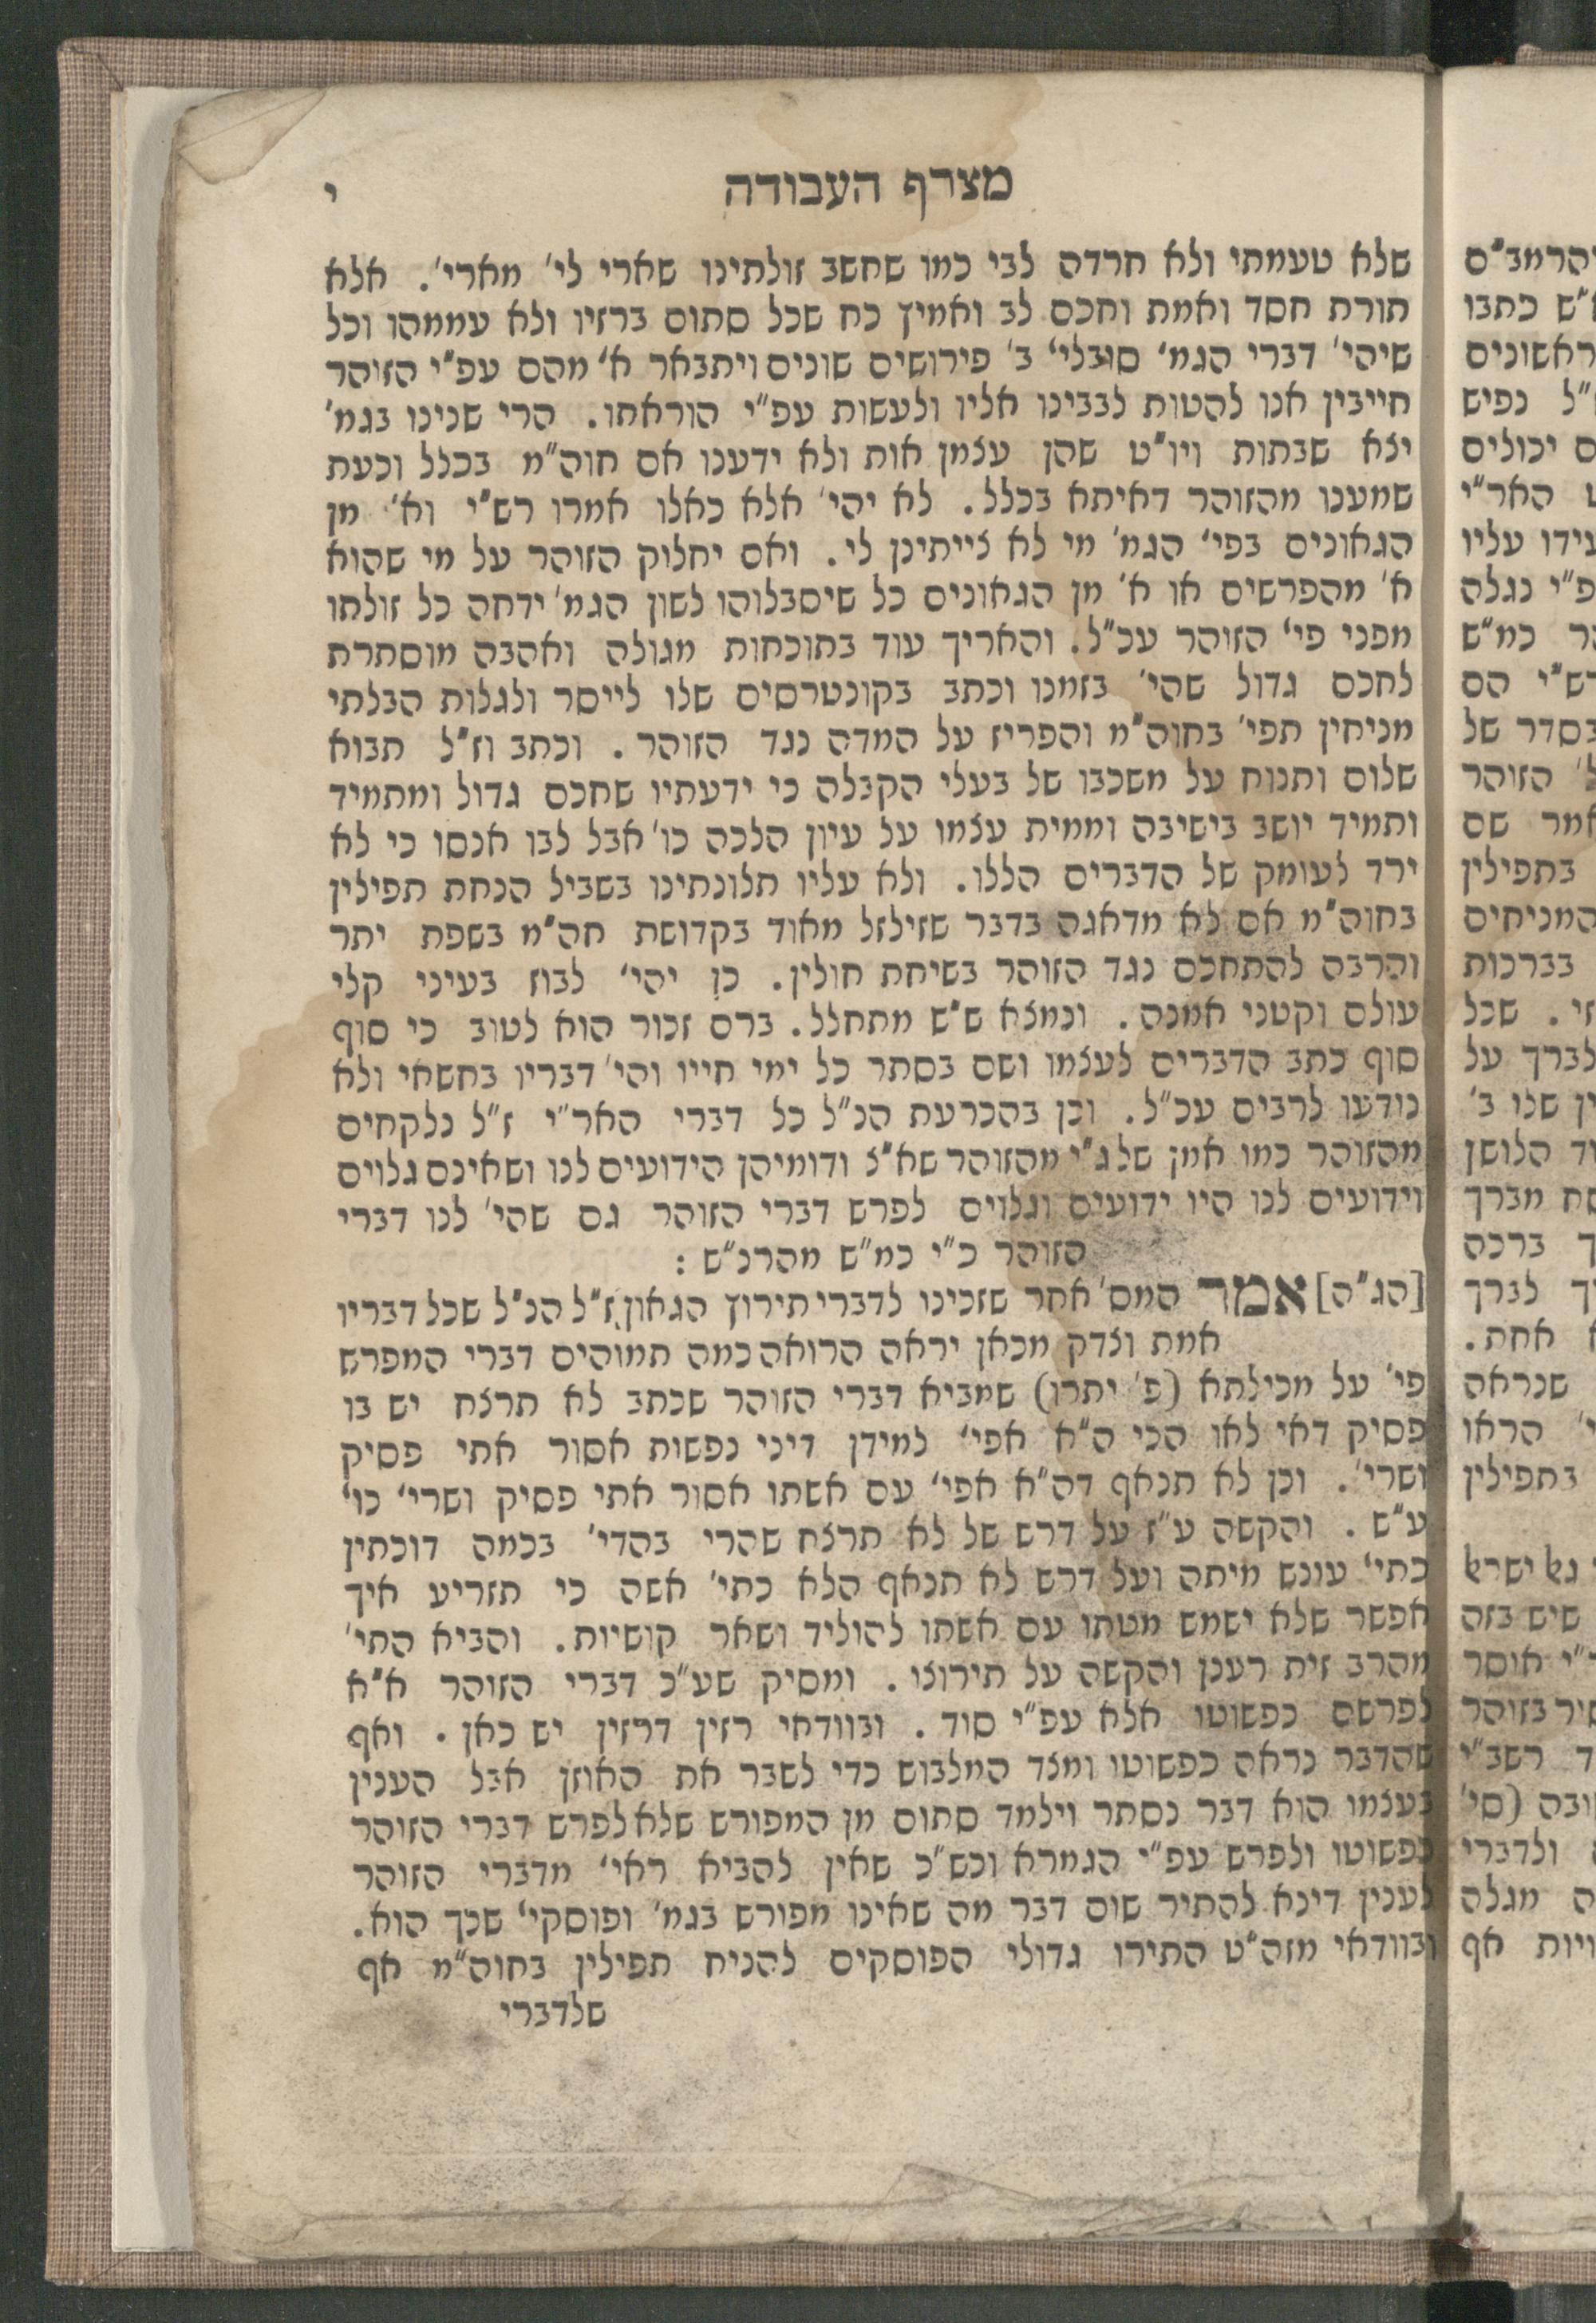 מצרף העבודה
י
שלא טעמתי ולא חרדה לבי כמו שחשב זולתינו שארי לי' מארי'. אלא
תורת חסד ואמת וחכם לב ואמיץ כח שכל סתום ברזיו ולא עממהו וכל
שיהי' דברי הגמ' סובלי' ב' פירושים שונים ויתבאר א' מהם עפ"י הזוהר
חייבין אנו להטות לבבינו אליו ולעשות עפ"י הוראתו. הרי שנינו בגמ'
יצא שבתות ויו"ט שהן עצמן אות ולא ידענו אם חוה"מ בכלל וכעת
שמענו מהזוהר דאיתא בכלל. לא יהי' אלא כאלו אמרו רש"י וא' מן
הגאונים בפי' הגמ' מי לא צייתינן לי. ואם יחלוק הזוהר על מי שהוא
א' מהפרשים או א' מן הגאונים כל שיסבלוהו לשון הגמ' ידחה כל זולתו
מפני פי' הזוהר עכ"ל. והאריך עוד בתוכחות מגולה ואהבה מוסתרת
לחכם גדול שהי' בזמנו וכתב בקונטרסים שלו לייסר ולגלות הבלתי
מניחין תפי' בחוה"מ והפריז על המדה נגד הזוהר. וכתב וז"ל תבוא
שלום ותנוח על משכבו של בעלי הקבלה כי ידעתיו שחכם גדול ומתמיד
ותמיד יושב בישיבה וממית עצמו על עיון הלכה כו' אבל לבו אנסו כי לא
ירד לעומק של הדברים הללו. ולא עליו תלונתינו בשביל הנחת תפילין
בחוה"מ אם לא מדאגה בדבר שזילזל מאוד בקדושת חה"מ בשפת יתר
והרבה להתחכם נגד הזוהר בשיחת חולין. כן יהי' לבוז בעיני קלי
עולם וקטני אמנה. ונמצא ש"ש מתחלל. ברם זכור הוא לטוב כי סוף
סוף כתב הדברים לעצמו ושם בסתר כל ימי חייו והי' דבריו בחשאי ולא
נודעו לרבים עכ"ל. וכן בהכרעת הנ"ל כל דברי האר"י ז"ל נלקחים
מהזוהר כמו אמן של ג"י מהזוהר שא"צ ודומיהן הידועים לנו ושאינם גלוים
וידועים לנו היו ידועים וגלוים לפרש דברי הזוהר גם שהי' לנו דברי
הזוהר כ"י כמ"ש מהרנ"ש :
[הג"ה] אמר המס' אחר שזכינו לדברי תירוץ הגאון ז"ל הנ"ל שכל דבריו
אמת וצדק מכאן יראה הרואה כמה תמוהים דברי המפרש
פי' על מכילתא (פ' יתרו) שמביא דברי הזוהר שכתב לא תרצח יש בו
פסיק דאי לאו הכי ה"א אפי' למידן דיני נפשות אסור אתי פסיק
ושרי'. וכן לא תנאף דה"א אפי' עם אשתו אסור אתי פסיק ושרי' כו'
ע"ש. והקשה ע"ז על דרש של לא תרצח שהרי בהדי' בכמה דוכתין
כתי' עונש מיתה ועל דרש לא תנאף הלא כתי' אשה כי תזריע איך
אפשר שלא ישמש מטתו עם אשתו להוליד ושאר קושיות. והביא התי'
מהרב זית רענן והקשה על תירוצו. ומסיק שע"כ דברי הזוהר א"א
לפרשם כפשוטו אלא עפ"י סוד. ובוודאי רזין דרזין יש כאן. ואף
שהדבר נראה כפשוטו ומצד המלבוש כדי לשבר את האוזן אבל הענין
בעצמו הוא דבר נסתר וילמד סתום מן המפורש שלא לפרש דברי הזוהר
כפשוטו ולפרש עפ"י הגמרא וכש"כ שאין להביא ראי' מדברי הזוהר
לענין דינא להתיר שום דבר מה שאינו מפורש בגמ' ופוסקי' שכך הוא.
ובוודאי מזה"ט התירו גדולי הפוסקים להניח תפילין בחוה"מ אף
שלדברי